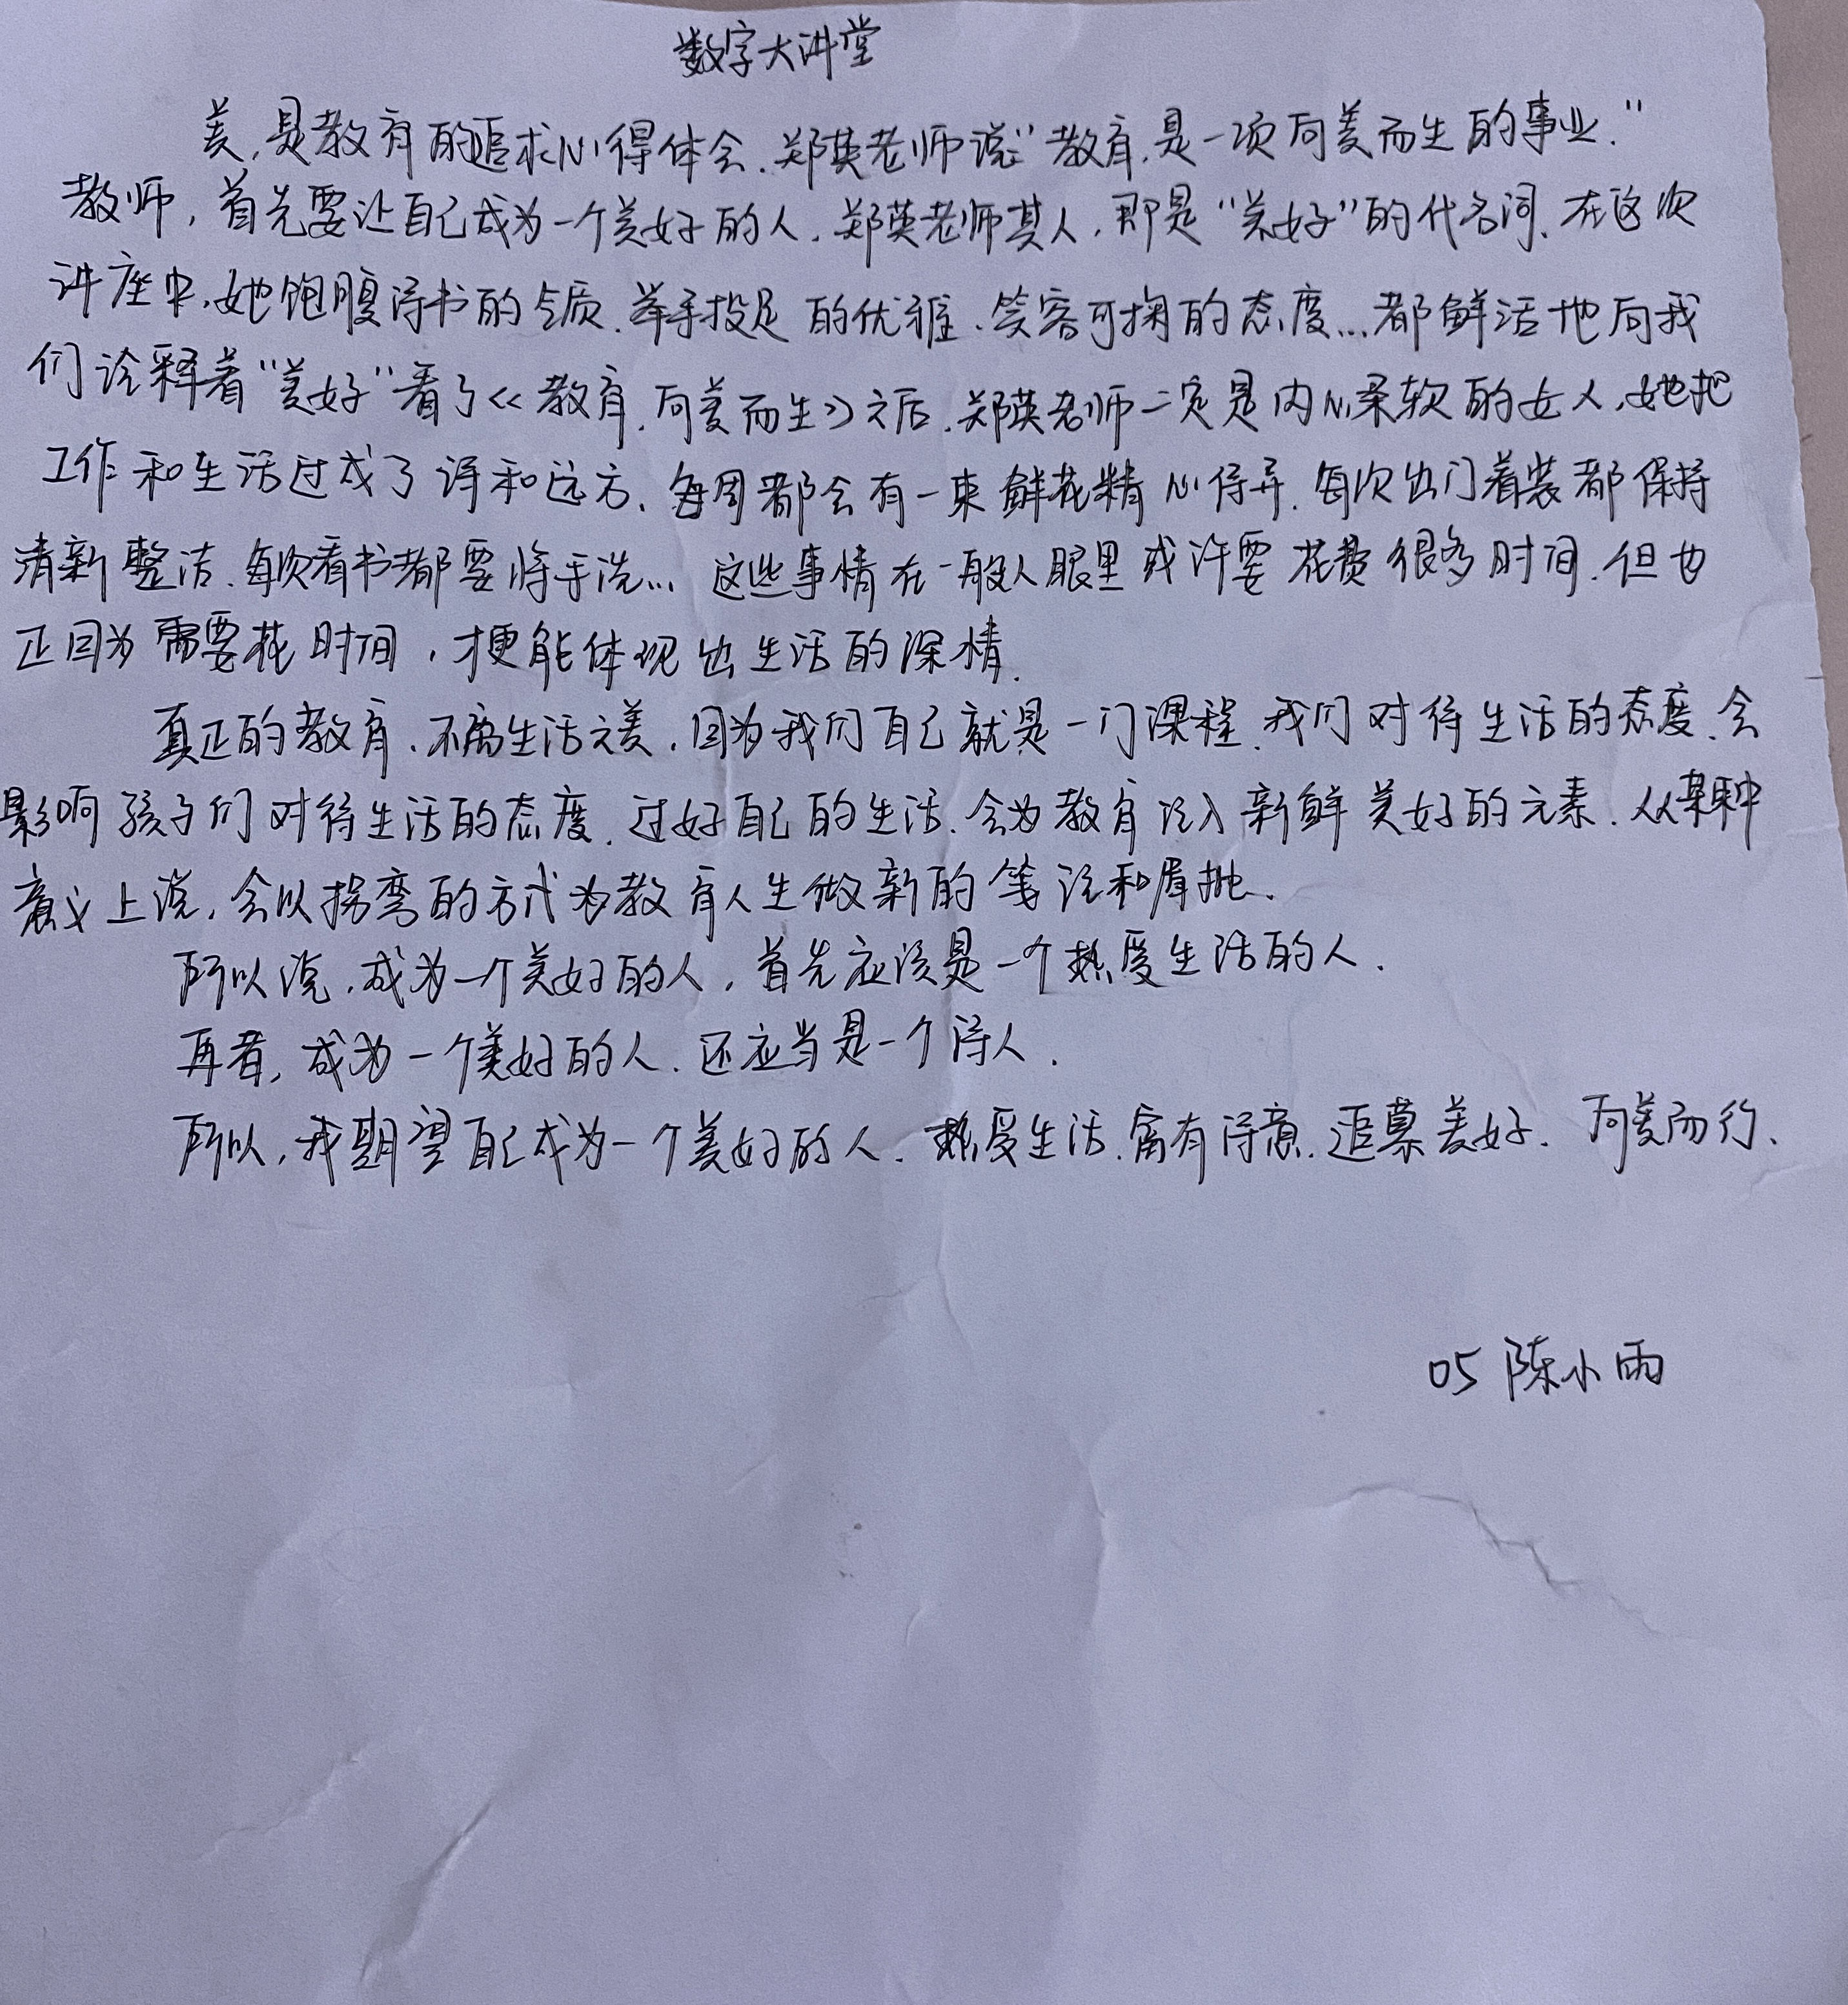 数字大讲堂
美,是教育的追求心得体会.郑英老师说:"教育,是一项向美而生的事业."
教师,首先要让自己成为一个美好的人.郑英老师其人,那是"美好"的代名词.在这次
讲座中,她饱腹诗书的气质.举手投足的优雅.笑容可掬的态度...都鲜活地向我
们诠释着"美好"看了《教育,向美而生》之后.郑英老师一定是内心柔软的女人,她把
工作和生活过成了译和远方.每周都会有一束鲜花精心侍弄.每次出门着装都保持
清新整洁.每次看书都要将手洗...这些事情在一般人眼里或许要花费很多时间.但也
正因为需要花时间,才更能体现出生活的深情.
真正的教育.不离生活之美.因为我们自己就是一门课程.我们对待生活的态度.会
影响孩子们对待生活的态度.过好自己的生活.会为教育注入新鲜美好的元素.从某种
意义上说,会以拐弯的方式为教育人生做新的笺注和眉批.
所以说,成为一个美好的人,首先应该是一个热爱生活的人.
再者,成为一个美好的人.还应当是一个诗人.
所以,我期望自己成为一个美好的人.热爱生活.富有诗意.追慕美好.向美而行.
05 陈小雨